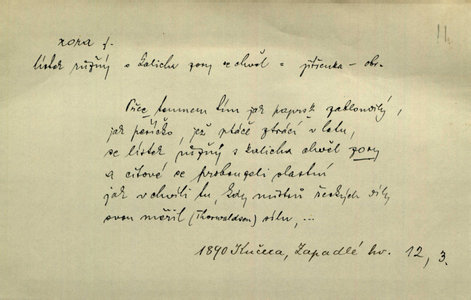 zora f.
lístek růžný s kalichu zory se chvěl = jiřienka – obr.
Přec temnem tím jak paprsk zabloudilý,
jak peříčko, jež ptáče ztrácí v letu,
se lístek růžný s kalicha chvěl zory
a citové se probouzeli vlastní
jak v chvíli tu, kdy mistrů řeckých díly
svou měřil (Thorwaldsen) sílu, ...
1890 Kučera, Zapadlé hv. 12, 3.